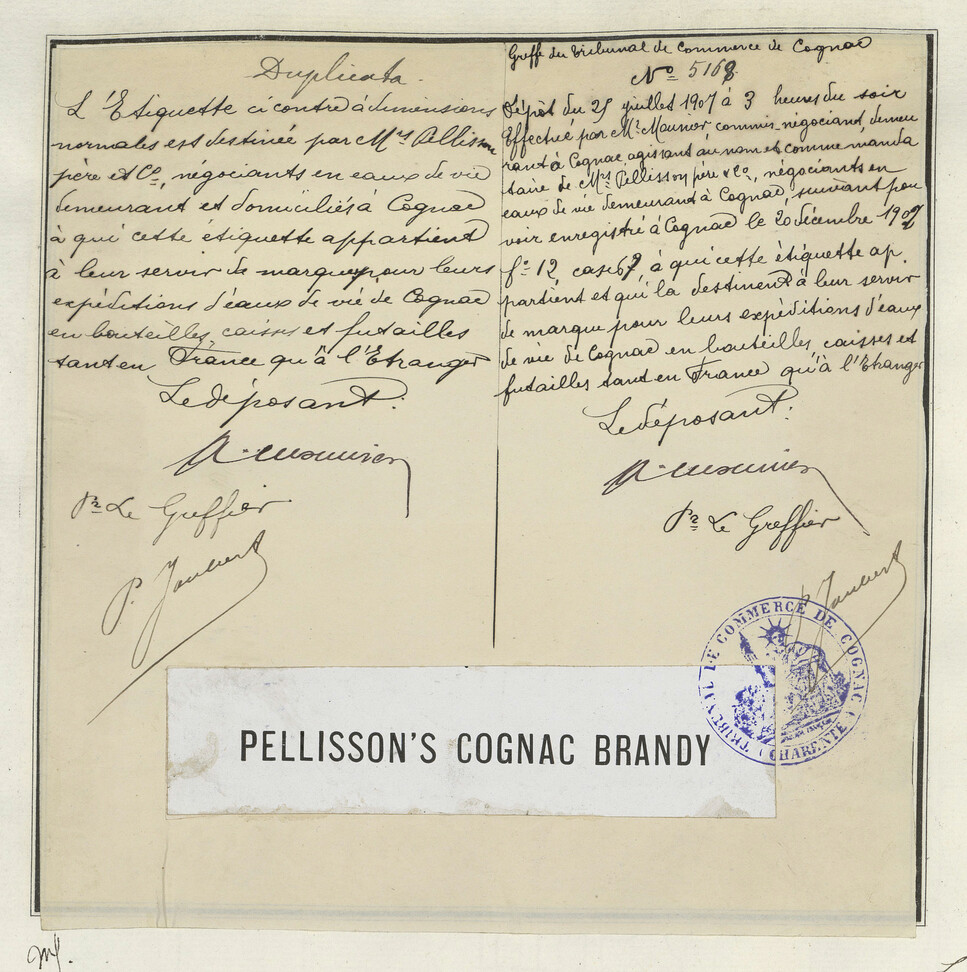 Duplicata.
L'Etiquette ci contre à dimensions
normales est destinée par Mrs Pellisson
père et Co, négociants en eaux de vie
demeurant et domiciliés à Cognac
à qui cette étiquette appartient
à leur servir de marque pour leurs
expéditions d'eaux de vie de Cognac
en bouteilles, caisses et futailles
tant en France qu'à l'Etranger
Le déposant.
Pr Le Greffier
P. Joubert
Greffe du Tribunal de Commerce de Cognac
No 5168
Dépôt du 25 juillet 1907 à 3 heures du soir
Effectué par Mr Maunier commis-négociant, demeu
rant à Cognac agissant au nom et comme manda
taire de Mrs Pellisson père & Co, négociants en
eaux de vie demeurant à Cognac, suivant pou
voir enregistré à Cognac le 20 décembre
fo 12 case 67, à qui cette étiquette ap.
partient et qui la destinent à leur servir
de marque pour leurs expéditions d'eaux
de vie de Cognac en bouteilles, caisses et
futailles tant en France qu'à l'Etranger
Le déposant.
Pr Le Greffier
P. Joubert
TRIBUNAL DE COMMERCE DE COGNAC
(CHARENTE)
PELLISSON'S COGNAC BRANDY